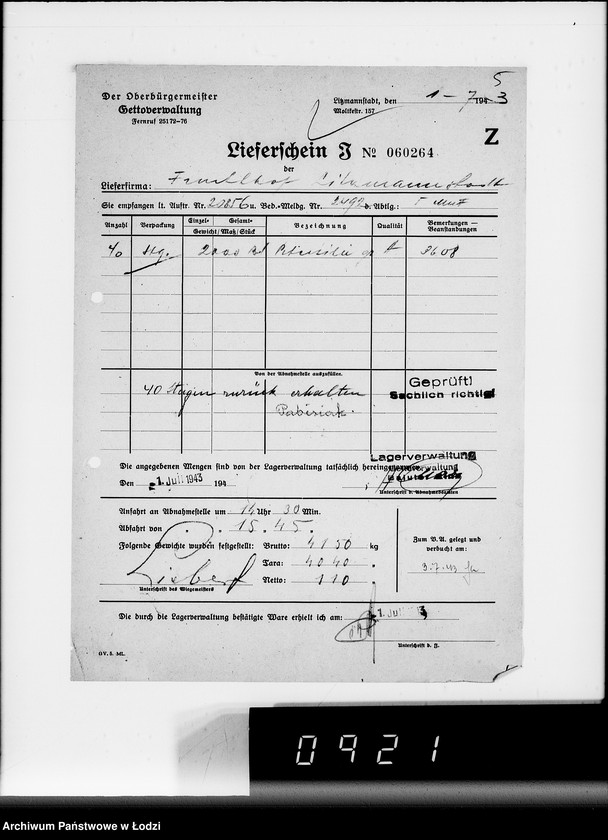 5
Der Oberbürgermeister
Gettoverwaltung
Fernruf 25172-76
Litzmannstadt, den 1-7 1943
Moltkestr. 157
Z
Lieferschein J № 060264
der
Lieferfirma: Fruchthof Litzmannstadt
Sie empfangen lt. Auftr. Nr. 20856 u. Bed.-Meldg. Nr. 2492 d. Abtlg.:
Anzahl Verpackung Einzel- Gesamt- Gewicht/Maß/Stück Bezeichnung Qualität Bemerkungen - Beanstandungen
40 Stg. 2000 Bd Petersilie 3608
Von der Abnahmestelle auszufüllen.
40 Stiegen zurück erhalten
Pabisiak.
Geprüft!
Sachlich richtig!
Lagerverwaltung
Die angegebenen Mengen sind von der Lagerverwaltung tatsächlich hereingenommen
Den 1. Juli 1943 194
Unterschrift d. Abnahmebeamten
Anfahrt an Abnahmestelle um 14 Uhr 30 Min.
Abfahrt von 15.45.
Folgende Gewichte wurden festgestellt: Brutto: 4150 kg
Tara: 4040 "
Netto: 110 "
Unterschrift des Wiegemeisters
Zum B.A. gelegt und
verbucht am:
3.7.43
Die durch die Lagerverwaltung bestätigte Ware erhielt ich am: 1. Juli
Unterschrift d. J.
GV. 5. ML.
0921
Archiwum Państwowe w Łodzi